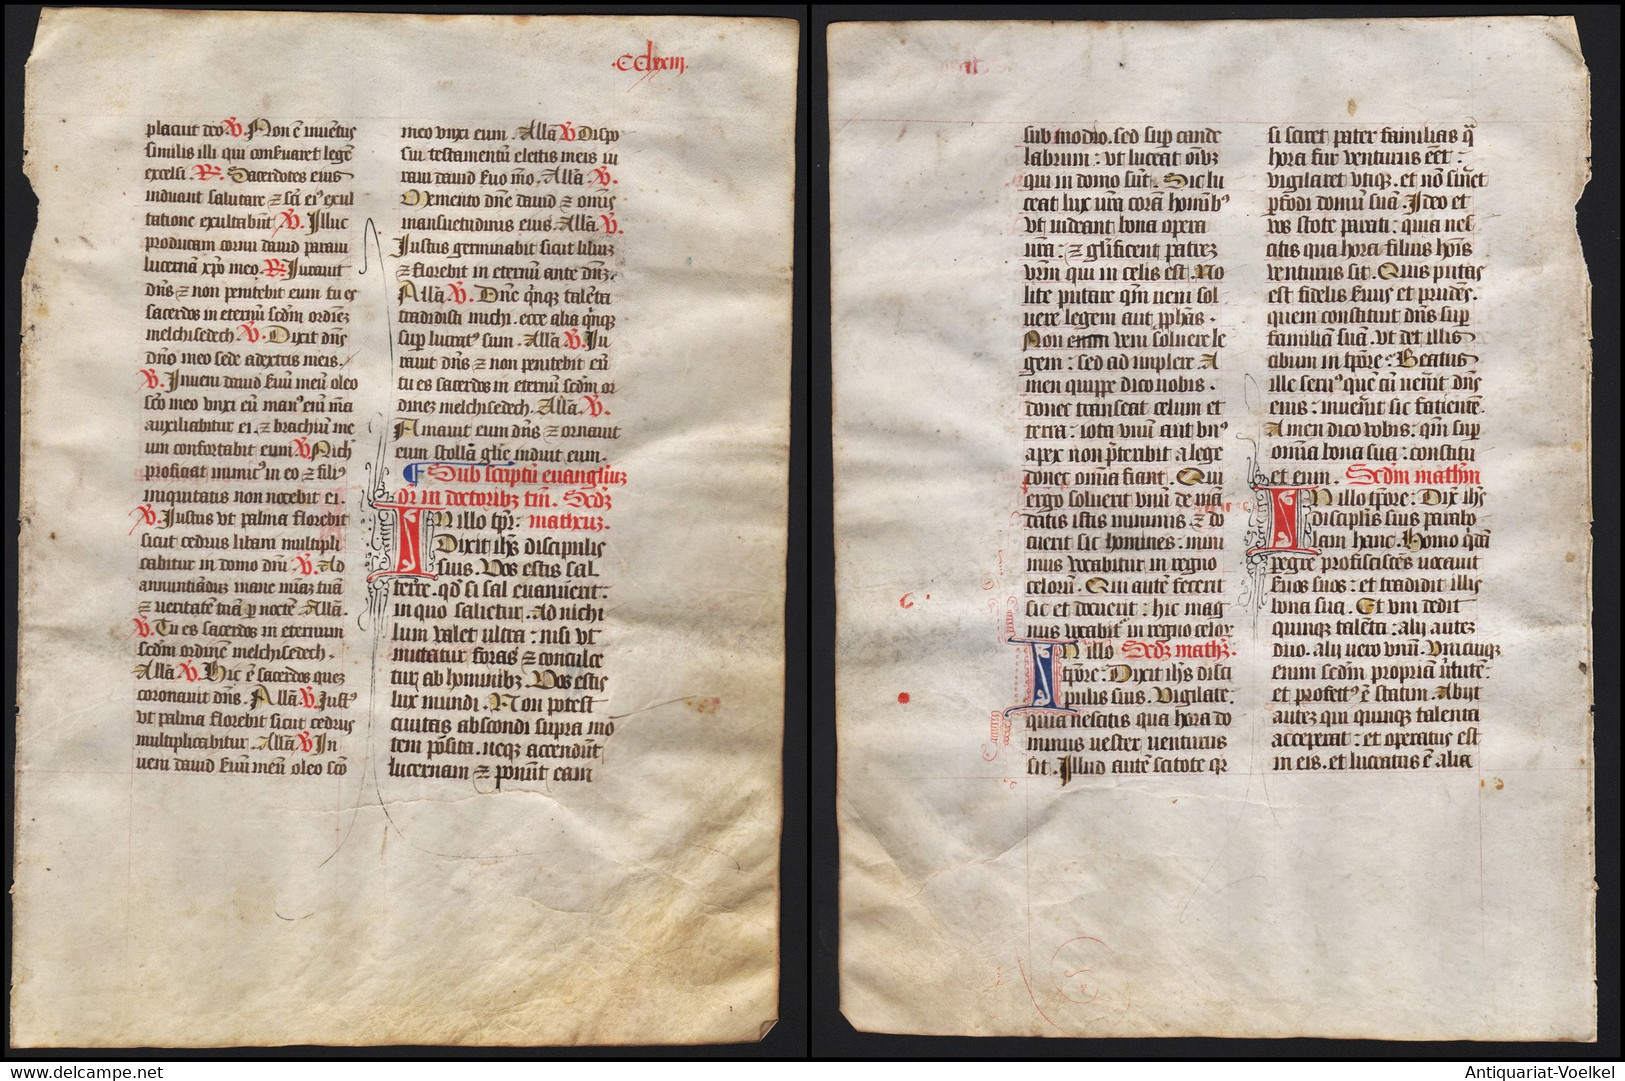 .CClxxiii.
placuit deo V. Non ē inuētus
similis illi qui conseruaret legē
excelsi. R. Sacerdotes eius
induant salutare ⁊ scī eiꝰ exul
tatione exultabūt V. Illuc
producam cornu dauid paraui
lucernā xpo meo. R. Iurauit
dn̄s ⁊ non penitebit eum tu es
sacerdos in eternū scdm ordinez
melchisedech V. Dixit dn̄s
dn̄o meo sede adextris meis.
V. Inueni dauid suū meū oleo
sc̄o meo vnxi eū manꝰ eiū m̄a
auxiliabitur ei. ⁊ brachiū me
um confortabit eum V. Nich
proficiat inimicꝰ in eo ⁊ filiꝰ
iniquitatis non nocebit ei.
V. Iustus vt palma florebit
sicut cedrus libani multipli
cabitur in domo dn̄i V. Ad
annuntiādus mane mīam tuā
⁊ veritatē tuā p noctē. Allā.
V. Tu es sacerdos in eternum
scdm ordinē melchisedech.
Allā V. Hic ē sacerdos quez
coronauit dn̄s. Allā V. Iustꝰ
vt palma florebit sicut cedrus
multiplicabitur. Allā V. In
ueni dauid suū meū oleo sc̄o
meo vnxi eum. Allā V. Dispo
sui testamentū electis meis iu
raui dauid suo m̄o. Allā. V.
Memento dn̄e dauid ⁊ om̄is
mansuetudinis eius. Allā. V.
Iustus germinabit sicut liliuz
⁊ florebit in eternū ante dn̄z.
Allā. V. Dn̄e qn̄qz talēta
tradidisti michi. ecce alia qn̄qz
sup lucratꝰ sum. Allā V. Iu
rauit dn̄s ⁊ non penitebit eū
tu es sacerdos in eternū scdm or
dinez melchisedech. Allā. V.
Amauit eum dn̄s ⁊ ornauit
eum stollā glīe induit eum.
Sub scriptū euangliuz
dr̄ in doctoribz tm̄. Scdz
In illo tpr̄: matheuz.
Dixit ih̄s discipulis
suis. Vos estis sal
terre. qd si sal euanuerit:
in quo salietur. Ad nichi
lum valet ultra: nisi vt
mittatur foras ⁊ conculce
tur ab hominibz. Vos estis
lux mundi. Non potest
ciuitas abscondi supra mō
tem posita. neqz accendūt
lucernam ⁊ ponūt eam
sub modio. sed sup cande
labrum: vt luceat oībz
qui in domo sūt. Sic lu
ceat lux vrā corā homībꝰ
vt videant bona opera
vrā: ⁊ glīficent patrez
vrm qui in celis est. No
lite putare qm̄ ueni sol
uere legem aut pphās.
Non enim veni soluere le
gem: sed ad implere. A
men quippe dico uobis.
donec transeat celum et
terra: iota vnū aut vnꝰ
apex non pteribit a lege
donec om̄ia fiant. Qui
ergo soluerit vnū de mā
datis istis minimis ⁊ do
cuerit sic homines: mini
mus vocabitur in regno
celorū. Qui autē fecerit
sic et docuerit: hic mag
nus vocabit in regno celor
In illo Scdz math̄z.
tpore: Dixit ih̄s disci
pulis suis. Vigilate:
quia nescitis qua hora do
minus uester uenturus
sit. Illud autē scitote qr
si sciret pater familias q̄
hora fur venturus eēt:
vigilaret vtiqz. et nō sineret
pfodi domū suā. Ideo et
vos stote parati: quia nes
citis qua hora filius hoīs
venturus sit. Quis putas
est fidelis suus et prudēs.
quem constituit dn̄s sup
familiā suā. vt det illis
cibum in tpore: Beatus
ille seruꝰ quē cū uenerit dn̄s
eius: inuenerit sic faciente.
Amen dico vobis: qm̄ sup
om̄ia bona sua: constitu
et eum. Scdm mathm
In illo tpore: Dix ih̄s
discipulis suis parabo
lam hanc. Homo qdā
pegre profisciscēs uocauit
suos suos: et tradidit illis
bona sua. Et vni dedit
quinqz talēta: alij autez
duo. alij vero vnū. Vnicuiqz
enim scdm propriā uirtutē:
et profectꝰ ē statim. Abijt
autez qui quinqz talenta
acceperat: et operatus est
in eis. et lucratus ē alia
www.delcampe.net
Antiquariat-Voelkel